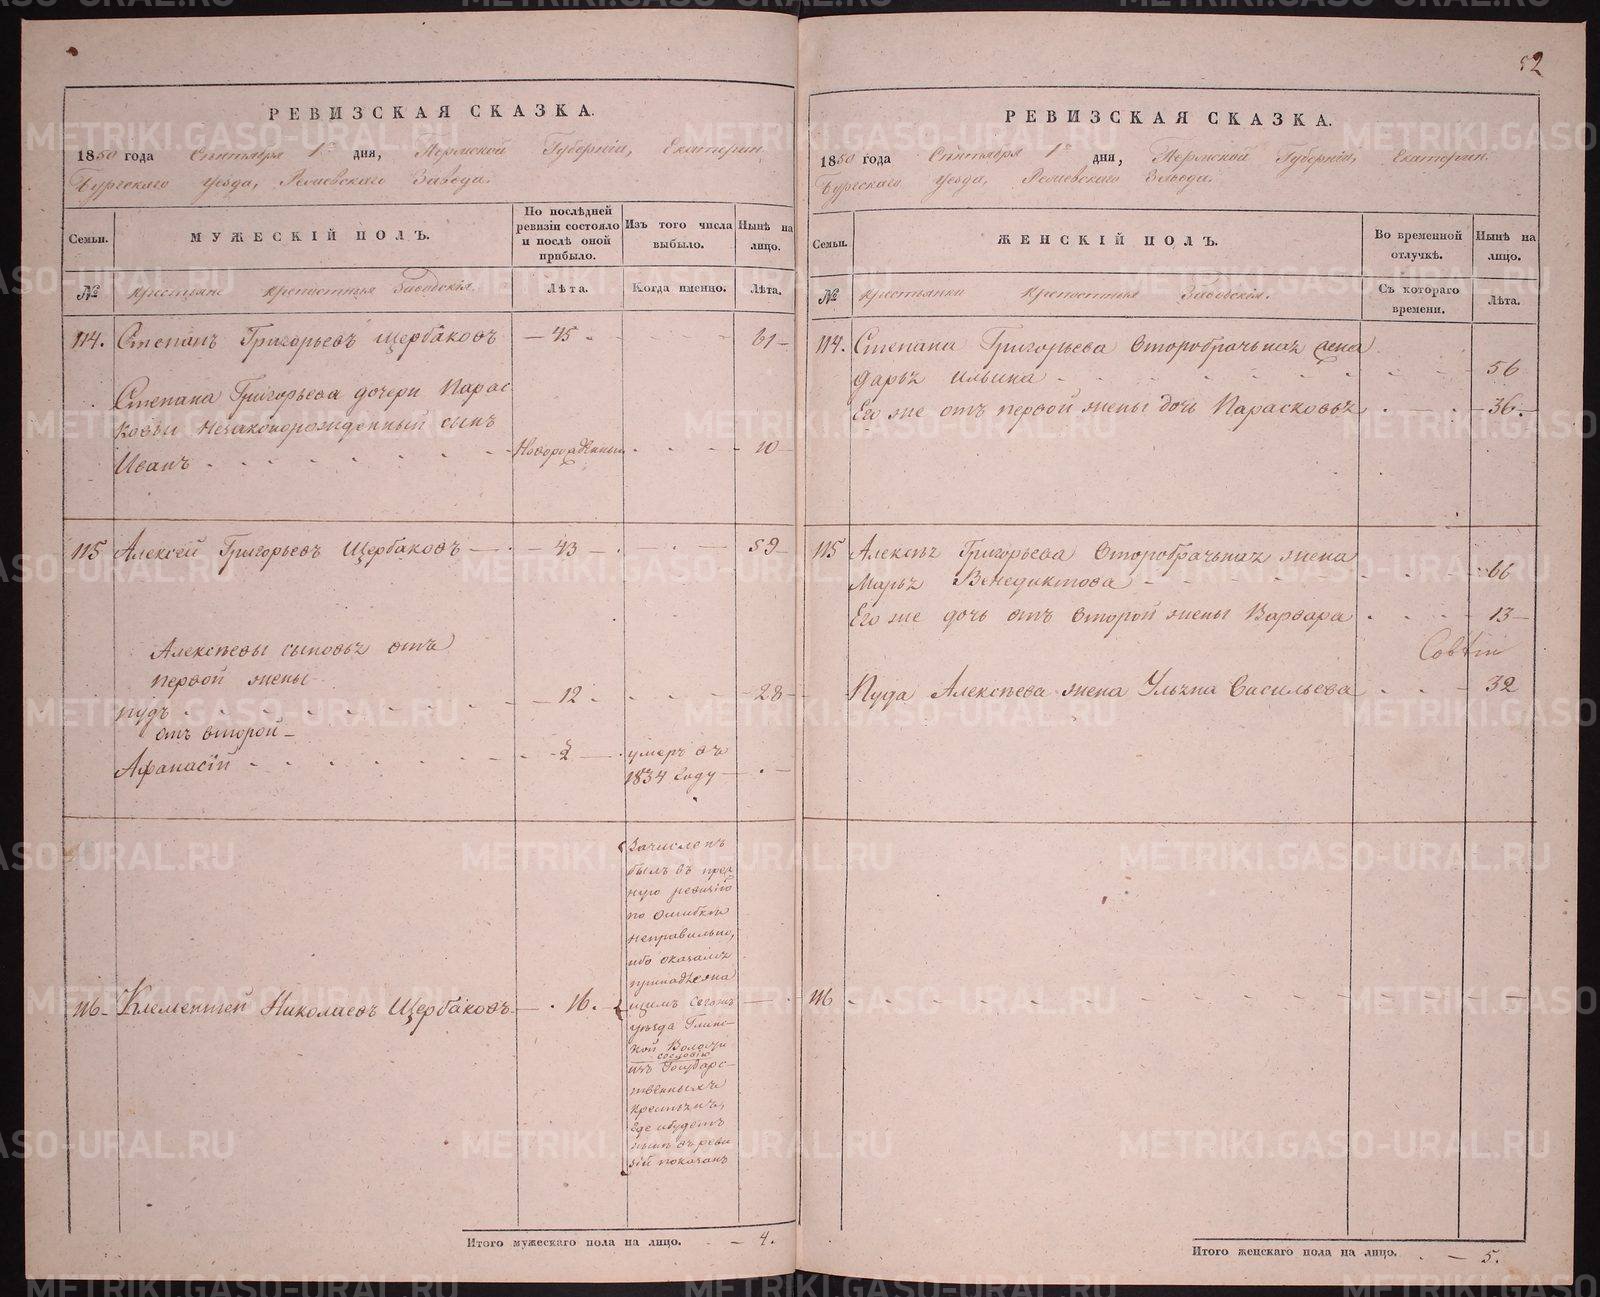 РЕВИЗСКАЯ СКАЗКА.
1850 года Сентября 1го дня, Пермской Губерніи, Екатерин
бургскаго уезда, Завода.
Семьи.
МУЖЕСКІЙ ПОЛЪ.
По послѣдней
ревизіи состояло
и послѣ оной
прибыло.
Изъ того числа
выбыло.
Нынѣ на
лицо.
№
Крестьяне крепостныя Заводскія.
Лѣта.
Когда именно.
Лѣта.
114. Степанъ Григорьевъ Щербаковъ — 45 61
Степана Григорьева дочери Парас
ковьи незаконорожденный сынъ
Иванъ Новорожденный 10
115 Алексей Григорьевъ Щербаковъ — 43 — 59
Алексѣевы сыновья отъ
первой жены
Пудъ 12 28
отъ второй —
Афанасій 2 умеръ въ
1834 году
116 Клементей Николаевъ Щербаковъ 16.
Зачисленъ
былъ въ пред
ную ревизію
по ошибкѣ
неправильно,
ибо оказался
принадлежа
щимъ сегожъ
уѣзда Глин-
кой Волости
сословію
изъ Государс-
твенныхъ
крестьянъ,
где ибудетъ
нынѣ въ реви
зіи показанъ
Итого мужескаго пола на лицо. — 4.
52
РЕВИЗСКАЯ СКАЗКА.
1850 года Сентября 1го дня, Пермской Губерніи, Екатерин.
бургскаго уезда, Завода.
Семьи.
ЖЕНСКІЙ ПОЛЪ.
Во временной
отлучкѣ.
Нынѣ на
лицо.
№
Крестьянки Крепостныя Заводскія.
Съ котораго
времени.
Лѣта.
114. Степана Григорьева второбрачная жена
Дарья Ильина 56
Его же отъ первой жены дочь Парасковья 36.
115 Алексея Григорьева второбрачная жена
Марья Венедиктова 66
Его же дочь отъ второй жены Варвара 13
Пуда Алексѣева жена Ульяна Васильева 32
116
Итого женскаго пола на лицо. — 5.
METRIKI.GASO-URAL.RU